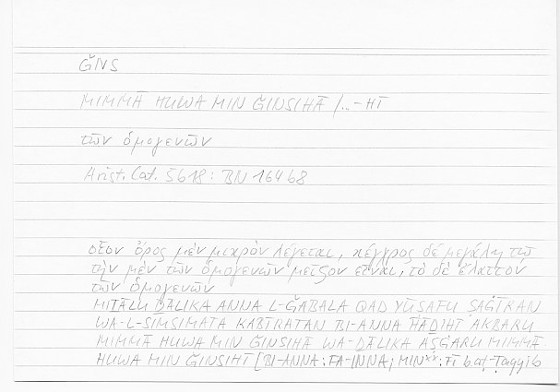 ǦNS
MIMMĀ HUWA MIN ǦINSIHĀ /..-HĪ
τῶν ὁμογενῶν
Arist. Cat. 5b18: BN 164b8
οἷον ὄρος μὲν μικρὸν λέγεται, κέγχρος δὲ μεγάλη τῷ
τὴν μὲν τῶν ὁμογενῶν μεῖζον εἶναι, τὸ δὲ ἔλαττον
τῶν ὁμογενῶν
MIṮĀLU ḎĀLIKA ANNA L-ǦABALA QAD YŪṢAFU ṢAĠĪRAN
WA-L-SIMSIMATA KABĪRATAN BI-ANNA HĀḎIHĪ AKBARU
MIMMĀ HUWA MIN ǦINSIHĀ WA-ḎĀLIKA AṢĠARU MIMMĀ
HUWA MIN ǦINSIHĪ [BI-ANNA: FA-INNA; MIN**: FĪ b. aṭ-Ṭayyib